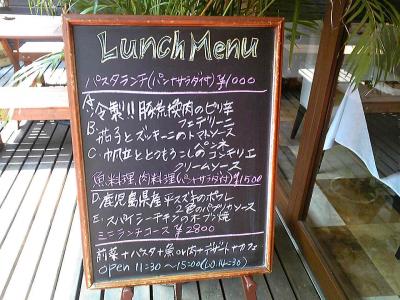 Lunch Menu
パスタランチ(パン+サラダ付)¥1000
A. 冷製!!豚 肉のピリ辛
フェデリーニ
B. 茄子とズッキーニのトマトソース
ペンネ
C. 帆立ととうもろこしのコンキリエ
クリームソース
魚料理,肉料理(パン+サラダ付)¥1500
D. 鹿児島県産 平スズキのポワレ
2色のパプリカソース
E. スパイシーチキンのオーブン焼
ミニランチコース ¥2800
前菜+パスタ+魚or肉+デザート+カフェ
open 11:30~15:00(L.O.14:30)